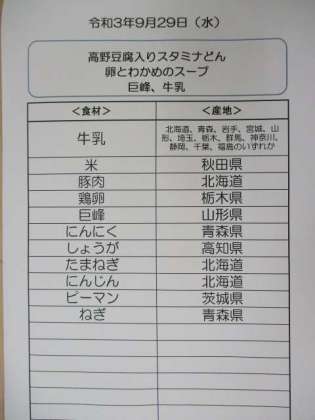 令和3年9月29日（水）
高野豆腐入りスタミナどん
卵とわかめのスープ
巨峰、牛乳
＜食材＞ ＜産地＞
牛乳 北海道、青森、岩手、宮城、山
形、埼玉、栃木、群馬、神奈川、
静岡、千葉、福島のいずれか
米 秋田県
豚肉 北海道
鶏卵 栃木県
巨峰 山形県
にんにく 青森県
しょうが 高知県
たまねぎ 北海道
にんじん 北海道
ピーマン 茨城県
ねぎ 青森県